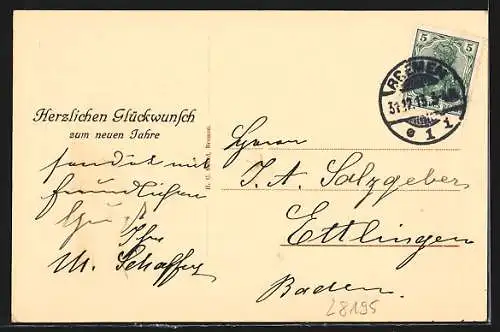 Herzlichen Glückwunsch
zum neuen Jahre
sendet mit
freundlichen
Ihr
M. Schaffer
5 5
BREMEN
31.12.13
e 1 1
Herrn
J. A. Salzgeber
Ettlingen
Baden.
L8195